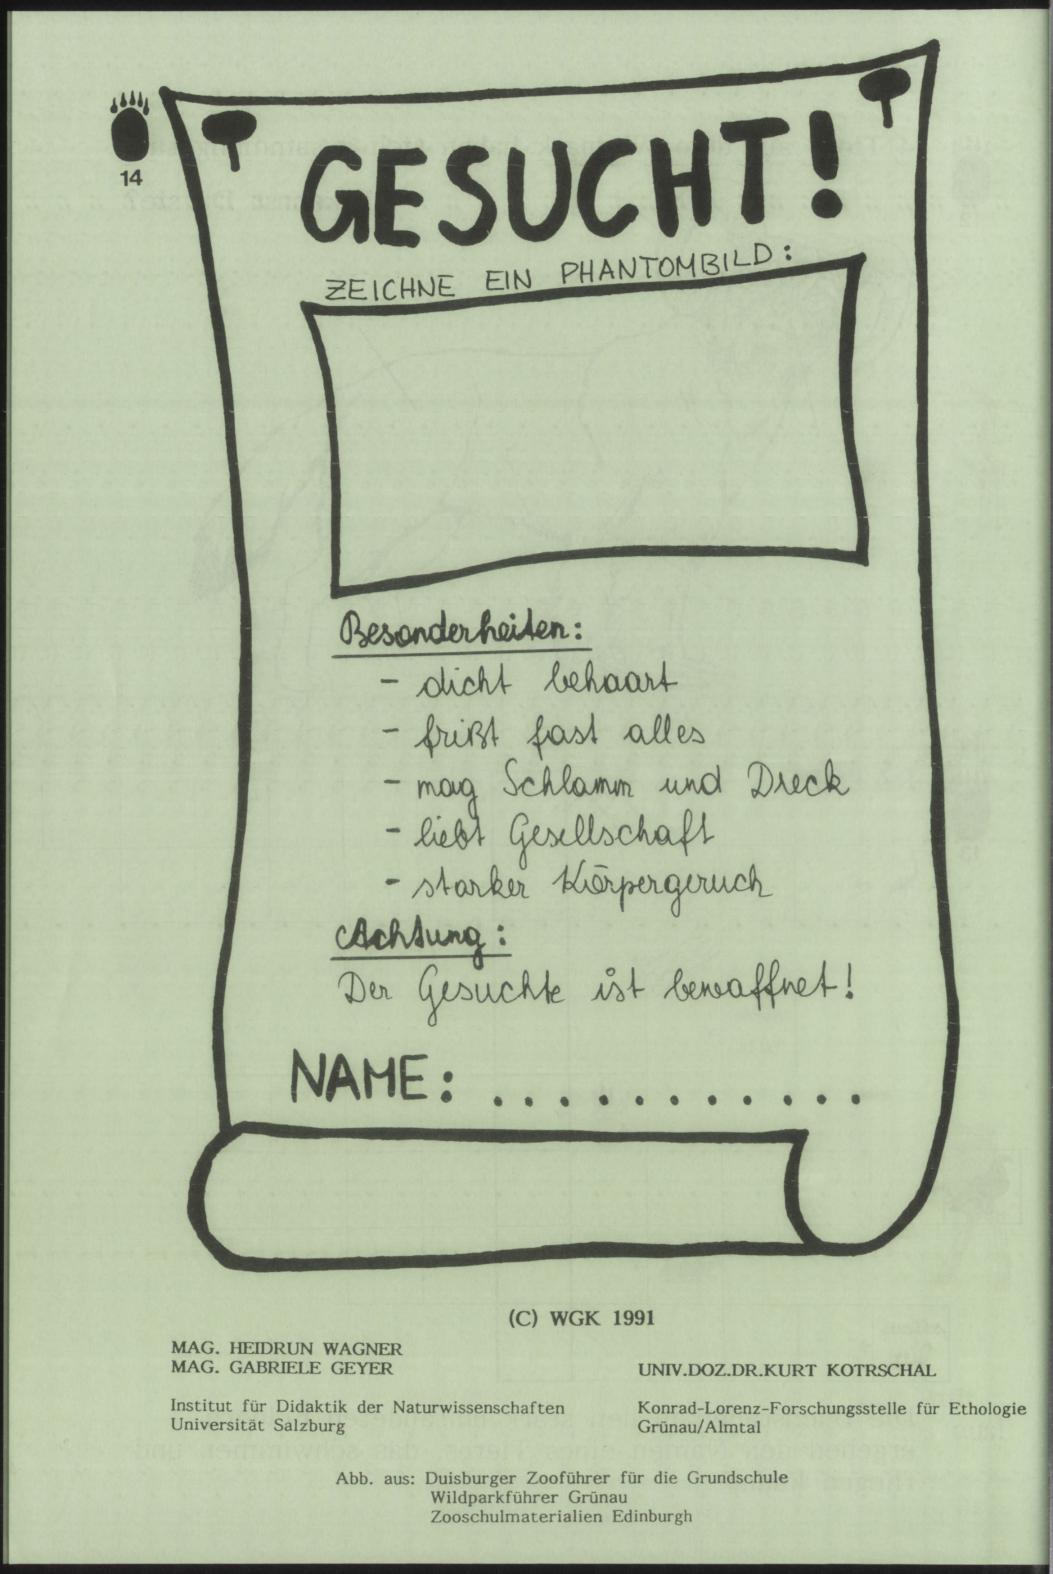 14
GESUCHT!
ZEICHNE EIN PHANTOMBILD:
Besonderheiten:
- dicht behaart
- frißt fast alles
- mag Schlamm und Dreck
- liebt Gesellschaft
- starker Körpergeruch
Achtung:
Der Gesuchte ist bewaffnet!
NAME: ............
(C) WGK 1991
MAG. HEIDRUN WAGNER
MAG. GABRIELE GEYER
Institut für Didaktik der Naturwissenschaften
Universität Salzburg
UNIV.DOZ.DR.KURT KOTRSCHAL
Konrad-Lorenz-Forschungsstelle für Ethologie
Grünau/Almtal
Abb. aus: Duisburger Zooführer für die Grundschule
Wildparkführer Grünau
Zooschulmaterialien Edinburgh